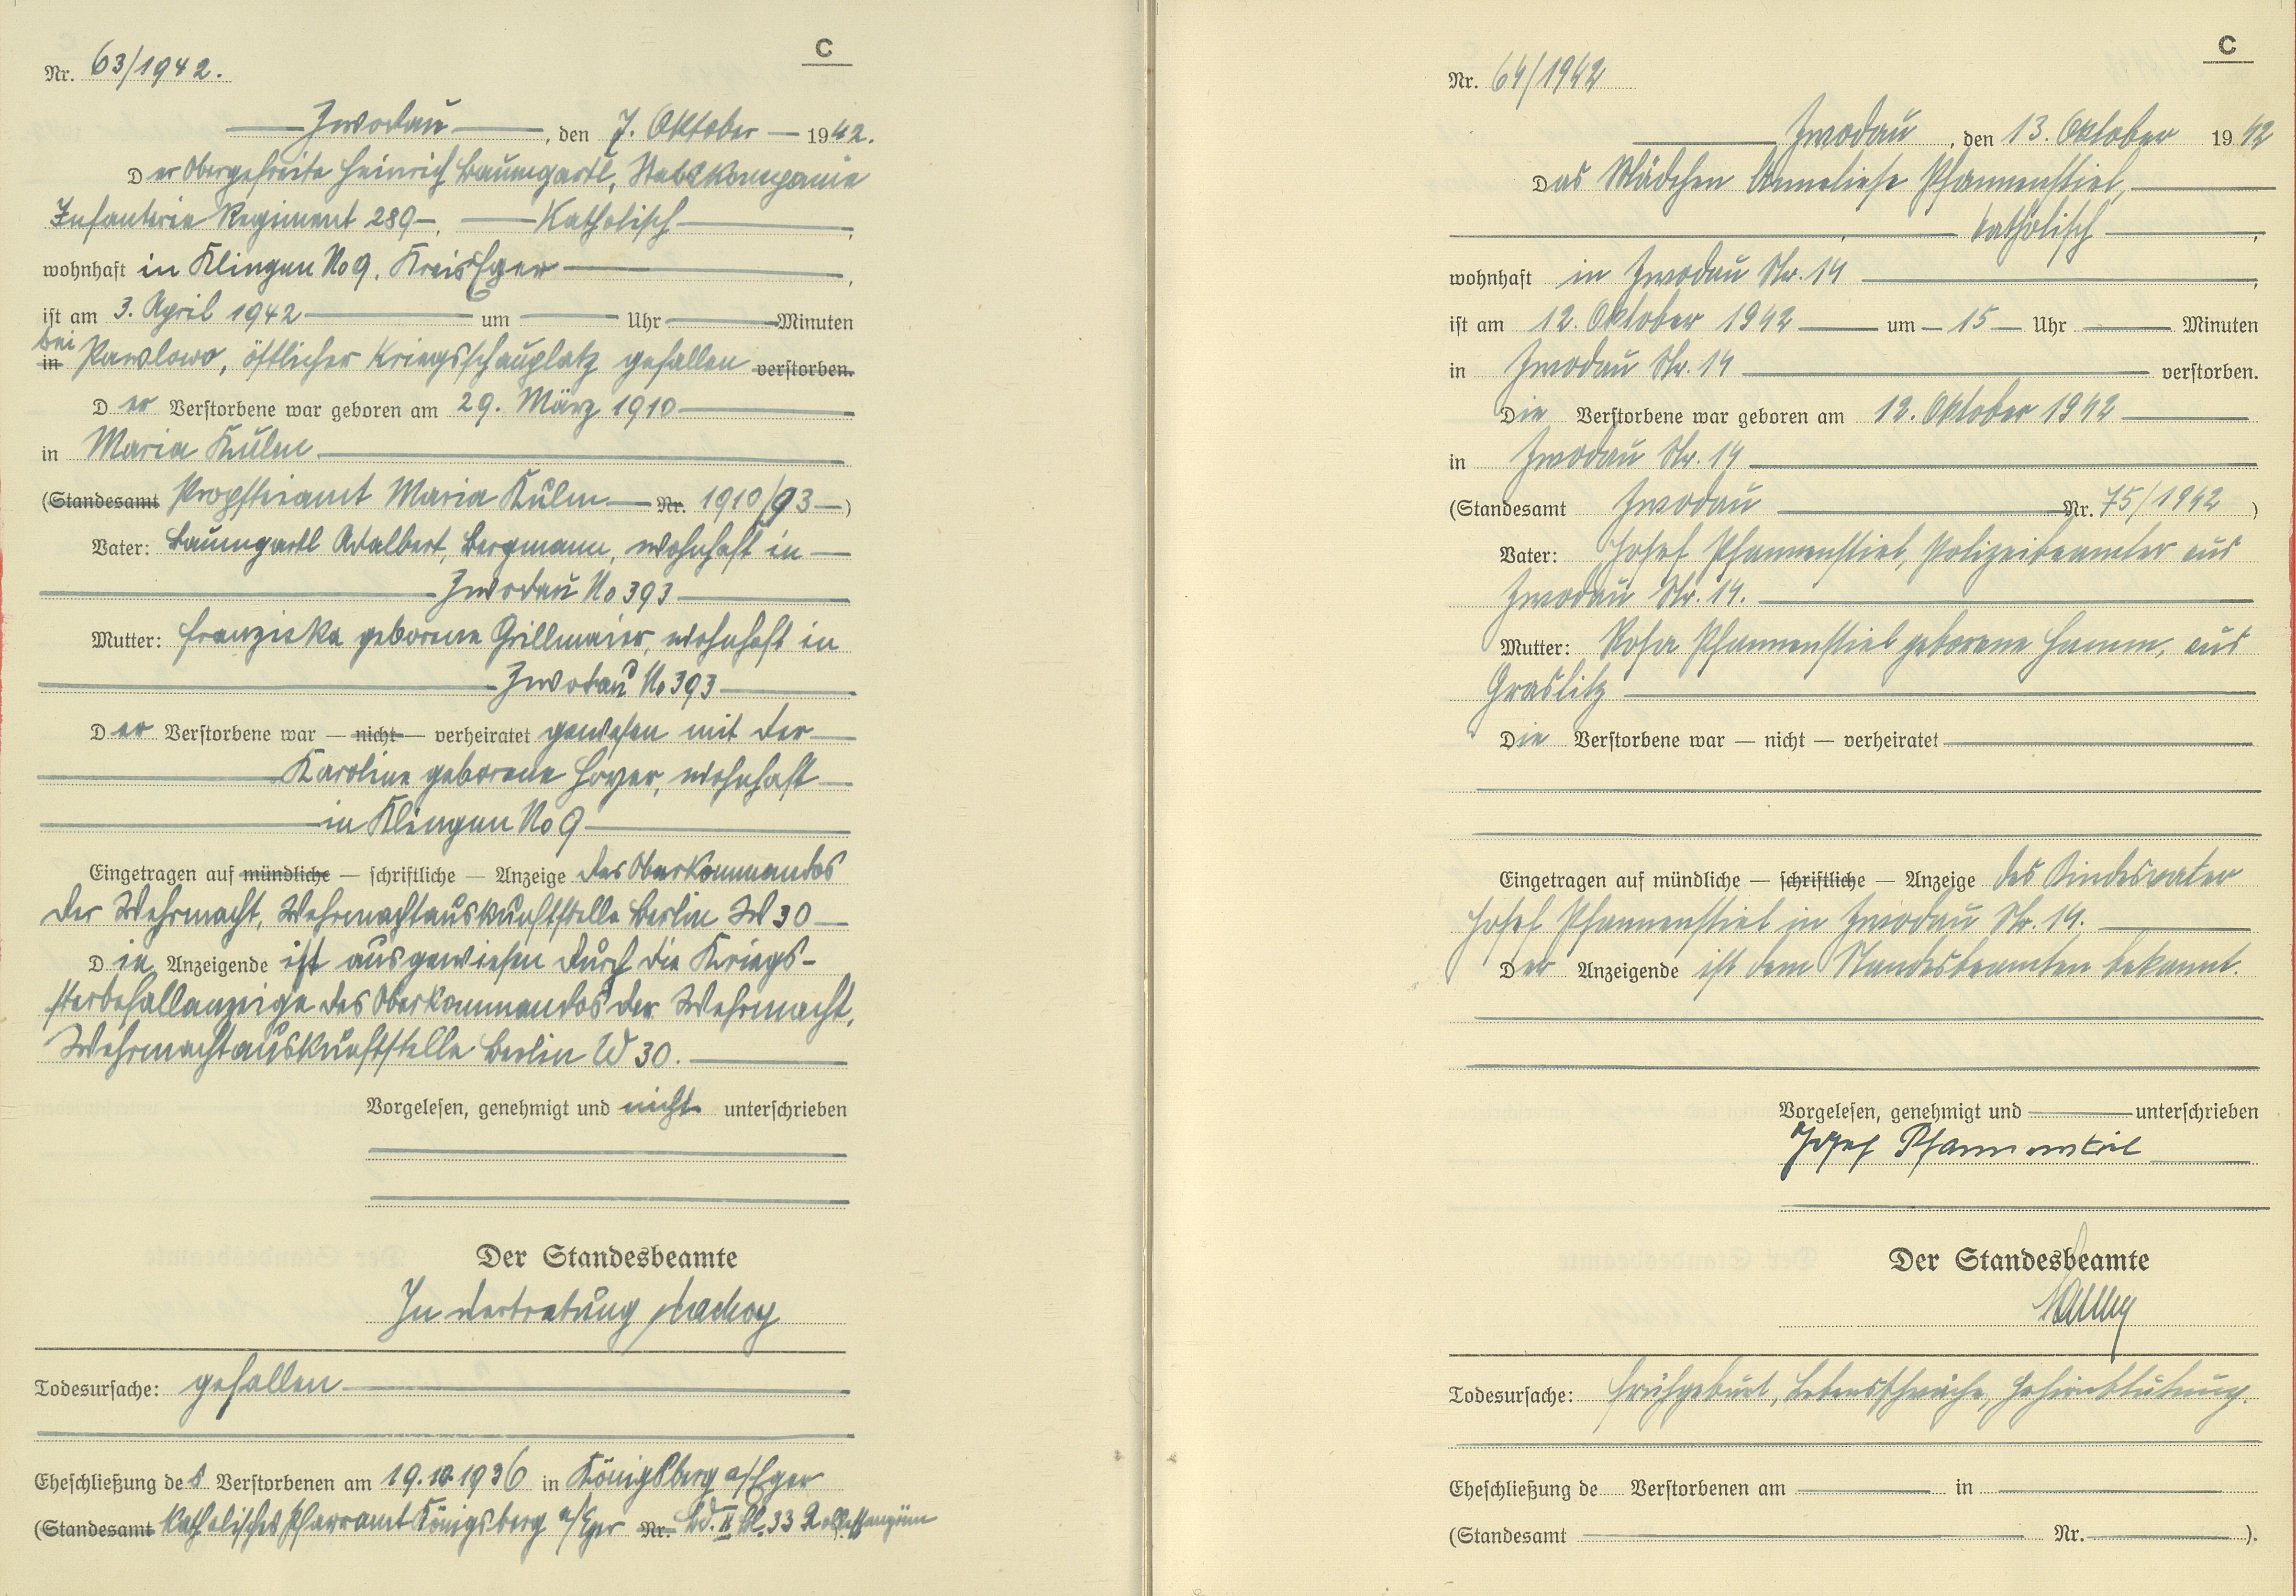 C
Nr. 63/1942.
Zwodau, den 7. Oktober 1942.
Der Obergefreite Heinrich Baumgartl, Stabskompanie
Infanterie Regiment 289, Katholisch,
wohnhaft in Klingen No 9, Kreis Eger,
ist am 3. April 1942 um Uhr Minuten
bei
in Pawlowo, östlicher Kriegsschauplatz gefallen verstorben.
Der Verstorbene war geboren am 29. März 1910
in Maria Kulm
(Standesamt Propsteiamt Maria Kulm Nr. 1910/93)
Vater: Baumgartl Adalbert, Bergmann, wohnhaft in
Zwodau No 393
Mutter: Franziska geborene Grillmaier, wohnhaft in
Zwodau No 393
Der Verstorbene war — nicht — verheiratet gewesen mit der
Karoline geborene Hoyer, wohnhaft
in Klingen No 9
Eingetragen auf mündliche — schriftliche — Anzeige des Oberkommandos
der Wehrmacht, Wehrmachtauskunftstelle Berlin W 30
Die Anzeigende ist ausgewiesen durch die Kriegs-
sterbefallanzeige des Oberkommandos der Wehrmacht,
Wehrmachtauskunftstelle Berlin W 30.
Vorgelesen, genehmigt und nicht unterschrieben
Der Standesbeamte
In Vertretung
Todesursache: gefallen
Eheschließung des Verstorbenen am 19.10.1936 in Königsberg a/Eger
(Standesamt Katholisches Pfarramt Königsberg a/Eger Nr. Bd. II Bl. 33
C
Nr. 64/1942
Zwodau, den 13. Oktober 1942
Das Mädchen Anneliese Pfannenstiel,
katholisch,
wohnhaft in Zwodau Nr. 14,
ist am 12. Oktober 1942 um 15 Uhr Minuten
in Zwodau Nr. 14 verstorben.
Die Verstorbene war geboren am 12. Oktober 1942
in Zwodau Nr. 14
(Standesamt Zwodau Nr. 75/1942)
Vater: Josef Pfannenstiel, Polizeibeamter aus
Zwodau Nr. 14.
Mutter: Rosa Pfannenstiel geborene Hamm, aus
Graslitz
Die Verstorbene war — nicht — verheiratet
Eingetragen auf mündliche — schriftliche — Anzeige des Kindesvater
Josef Pfannenstiel in Zwodau Nr. 14.
Der Anzeigende ist dem Standesbeamten bekannt.
Vorgelesen, genehmigt und unterschrieben
Josef Pfannenstiel
Der Standesbeamte
Todesursache: Frühgeburt, Lebensschwäche, Gehirnblutung.
Eheschließung de Verstorbenen am in
(Standesamt Nr. ).